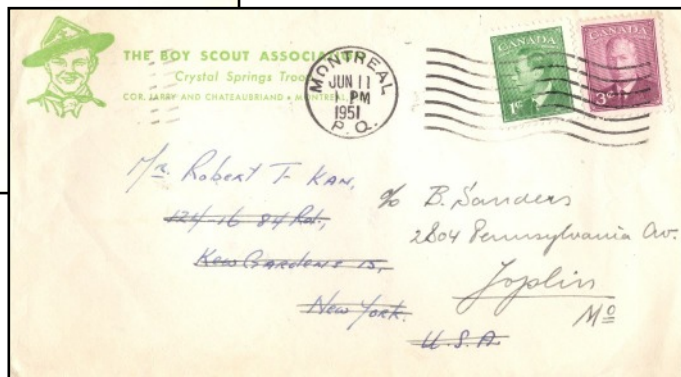 THE BOY SCOUT ASSOCIATION
Crystal Springs Troop
COR. JARRY AND CHATEAUBRIAND • MONTREAL,
MONTREAL
JUN 11
PM
1951
P. Q.
CANADA
1¢
CANADA
3¢
Mr. Robert T. KAN,
124-16 84 Rd.,
Kew Gardens 15,
New York.
U.S.A.
c/o B. Sanders
2804 Pennsylvania Av.
Joplin
Mo